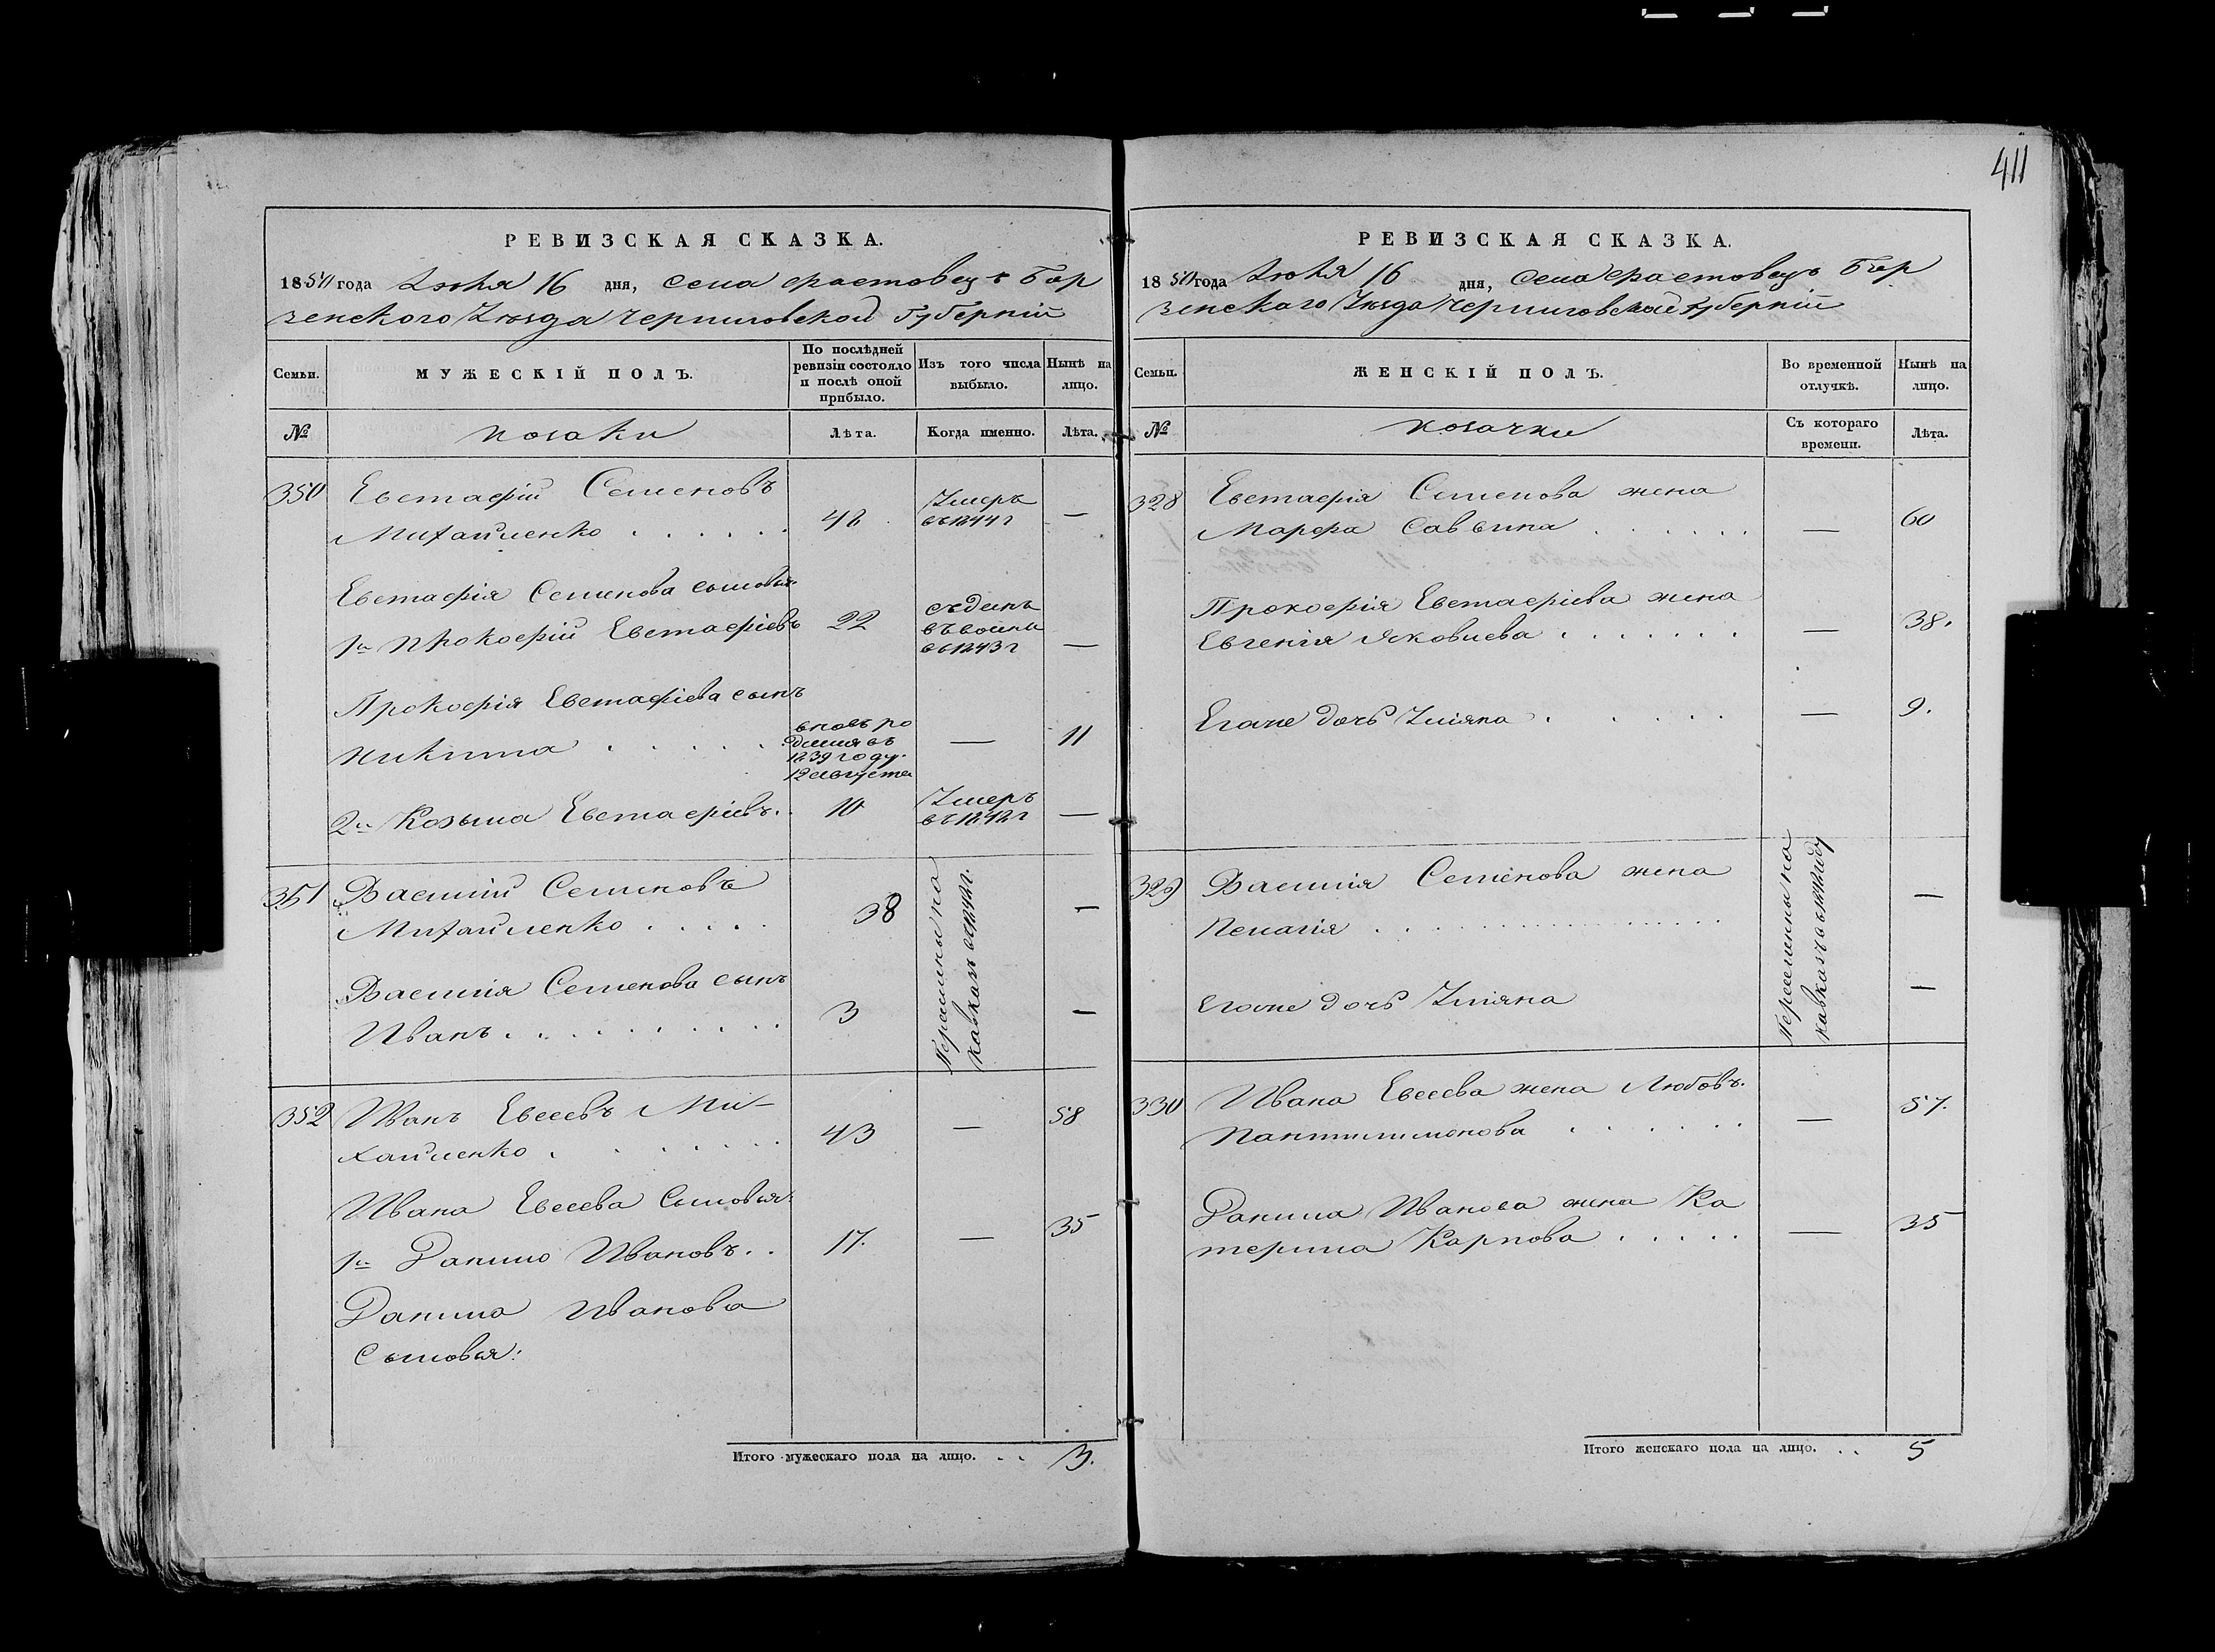 411
РЕВИЗСКАЯ СКАЗКА.
1850 года Іюня 16 дня, села Фастовецъ Бор
зенского Уѣзда Черниговской Губерніи
Семьи.
МУЖЕСКІЙ ПОЛЪ.
По послѣдней
ревизіи состояло
и послѣ оной
прибыло.
Изъ того числа
выбыло.
Нынѣ на
лицо.
№
Козаки
Лѣта.
Когда именно.
Лѣта.
350 Евстафій Семеновъ
Михайленко . . . . . . 48 Умеръ въ 1844 г —
Евстафія Семенова сыновья:
1й Прокофій Евстафіевъ 22 съданъ въ воины въ 1843 г —
Прокофія Евстафіева сынъ
Никита . . . . . вновь ро
дился въ
1839 году.
12 августа — 11
2й Козьма Евстафіевъ. . 10 Умеръ въ 1842 г —
351 Василій Семеновъ
Михайленко . . . . . 38 —
Василія Семенова сынъ
Иванъ . . . . . . . . . . 3 —
Переселены на
кавказъ
352 Иванъ Евсеевъ Ми-
хайленко . . . . . . 43 — 58
Ивана Евсеева Сыновья:
1й Данило Ивановъ. . 17. — 35
Данила Иванова
Сыновья:
Итого мужескаго пола на лицо. . . 3.
РЕВИЗСКАЯ СКАЗКА.
1850 года Іюня 16 дня, Села Фастовецъ Бор
зенского Уѣзда Черниговской Губерніи
Семьи.
ЖЕНСКІЙ ПОЛЪ.
Во временной
отлучкѣ.
Нынѣ на
лицо.
№
Козачки
Съ котораго
времени.
Лѣта.
328 Евстафія Семенова жена
Марфа Саввина . . . . . . — 60
Прокофія Евстафіева жена
Евгенія Яковлева . . . . . . . — 38.
Егоже дочь Уліяна . . . . . — 9.
329 Василія Семенова жена
Пелагія . . . . . . . . . . . . . . . . —
Егоже дочь Уліяна —
Переселены на
кавказъ
330 Ивана Евсеева жена Любовъ.
Пантилимонова . . . . . . — 57.
Данила Иванова жена Ка
терина Карпова . . . . . — 35
Итого женскаго пола на лицо. . . 5